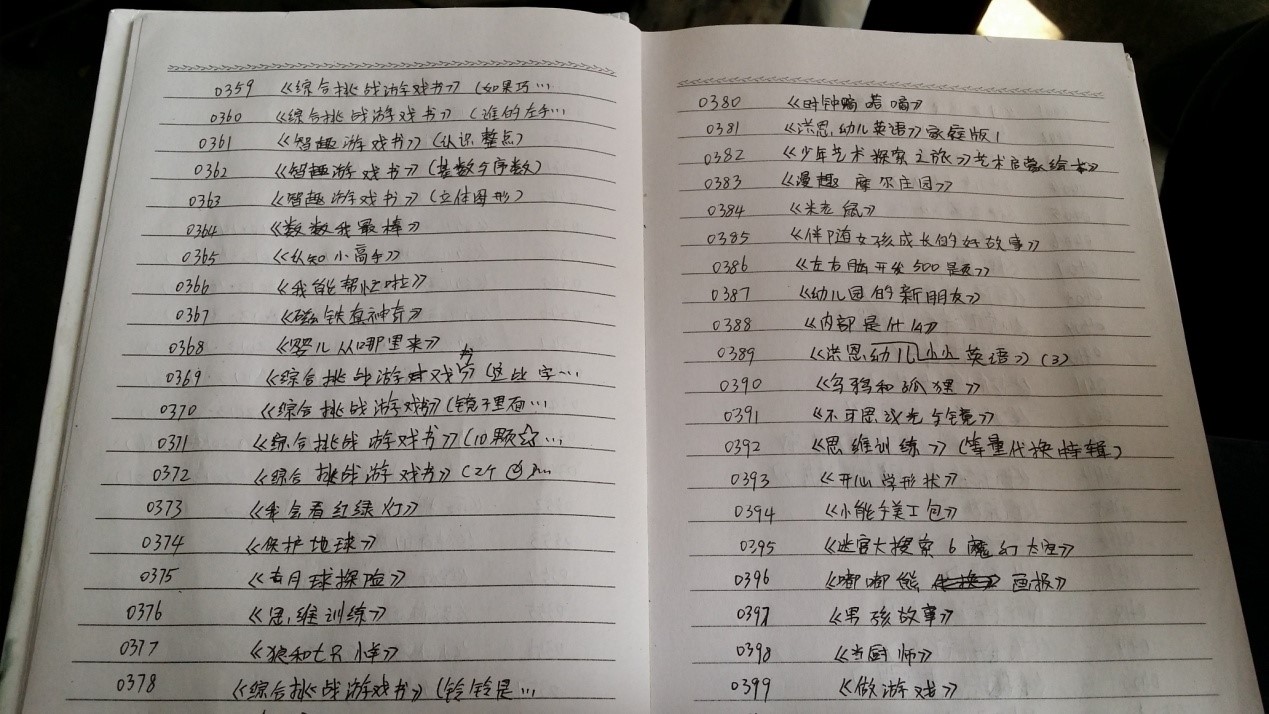 0359 《综合挑战游戏书》(如果巧…
0360 《综合挑战游戏书》(谁的左手…
0361 《智趣游戏书》(认识整点)
0362 《智趣游戏书》(基数与序数)
0363 《智趣游戏书》(立体图形)
0364 《数数我最棒》
0365 《认知小高手》
0366 《我能帮忙啦》
0367 《磁铁真神奇》
0368 《婴儿从哪里来》
0369 《综合挑战游戏书》(这些字…
0370 《综合挑战游戏书》(镜子里面…
0371 《综合挑战游戏书》(10颗☆…
0372 《综合挑战游戏书》(2个
0373 《我会看红绿灯》
0374 《保护地球》
0375 《去月球探险》
0376 《思维训练》
0377 《狼和七只小羊》
0378 《综合挑战游戏书》(铃铃是…
0380 《时钟嘀嗒嘀》
0381 《洪恩幼儿英语》家庭版1
0382 《少年艺术探索之旅》艺术启蒙绘本》
0383 《漫趣摩尔庄园》
0384 《米老鼠》
0385 《伴随女孩成长的好故事》
0386 《左右脑开发500题》
0387 《幼儿园的新朋友》
0388 《内部是什么》
0389 《洪恩幼儿 英语》(3)
0390 《乌鸦和狐狸》
0391 《不可思议光与镜》
0392 《思维训练》(等量代换特辑)
0393 《开心学形状》
0394 《小能手美工包》
0395 《迷宫大搜索6魔幻太空》
0396 《嘟嘟熊 画报》
0397 《男孩故事》
0398 《当厨师》
0399 《做游戏》